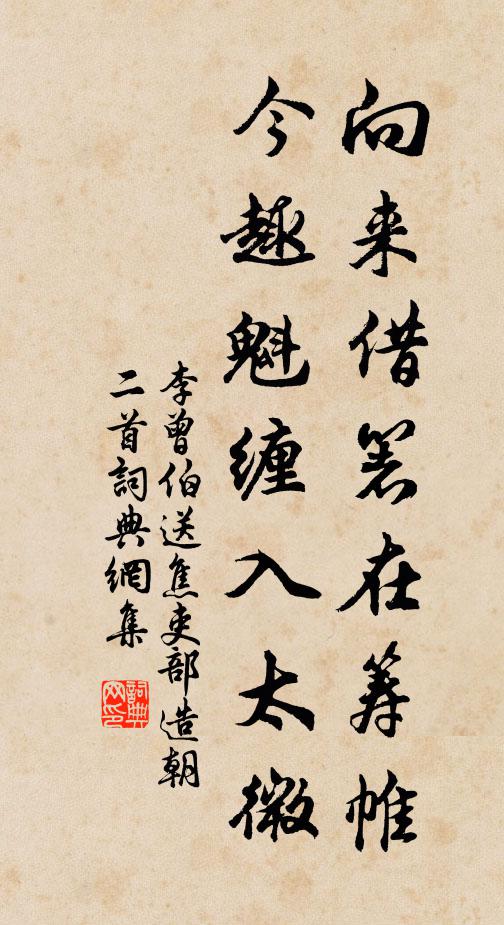 向来借箸在筹帷
今趣魁缠入太微
李曾伯送焦吏部造朝
二首詞典網集
詞典網印